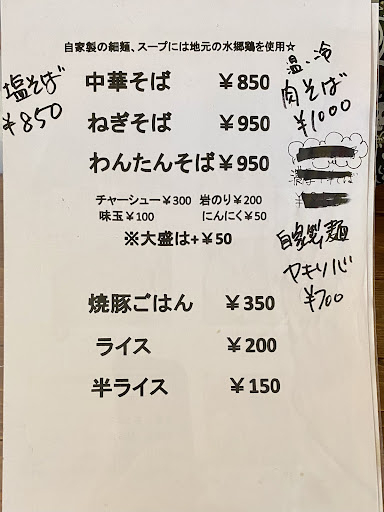 自家製の細麺、スープには地元の水郷鶏を使用☆
塩そば
¥850
中華そば ¥850
ねぎそば ¥950
わんたんそば ¥950
チャーシュー¥300 岩のり¥200
味玉¥100 にんにく¥50
※大盛は+¥50
焼豚ごはん ¥350
ライス ¥200
半ライス ¥150
温、冷
肉そば
¥1000
自家製麺
ヤキソバ
¥700